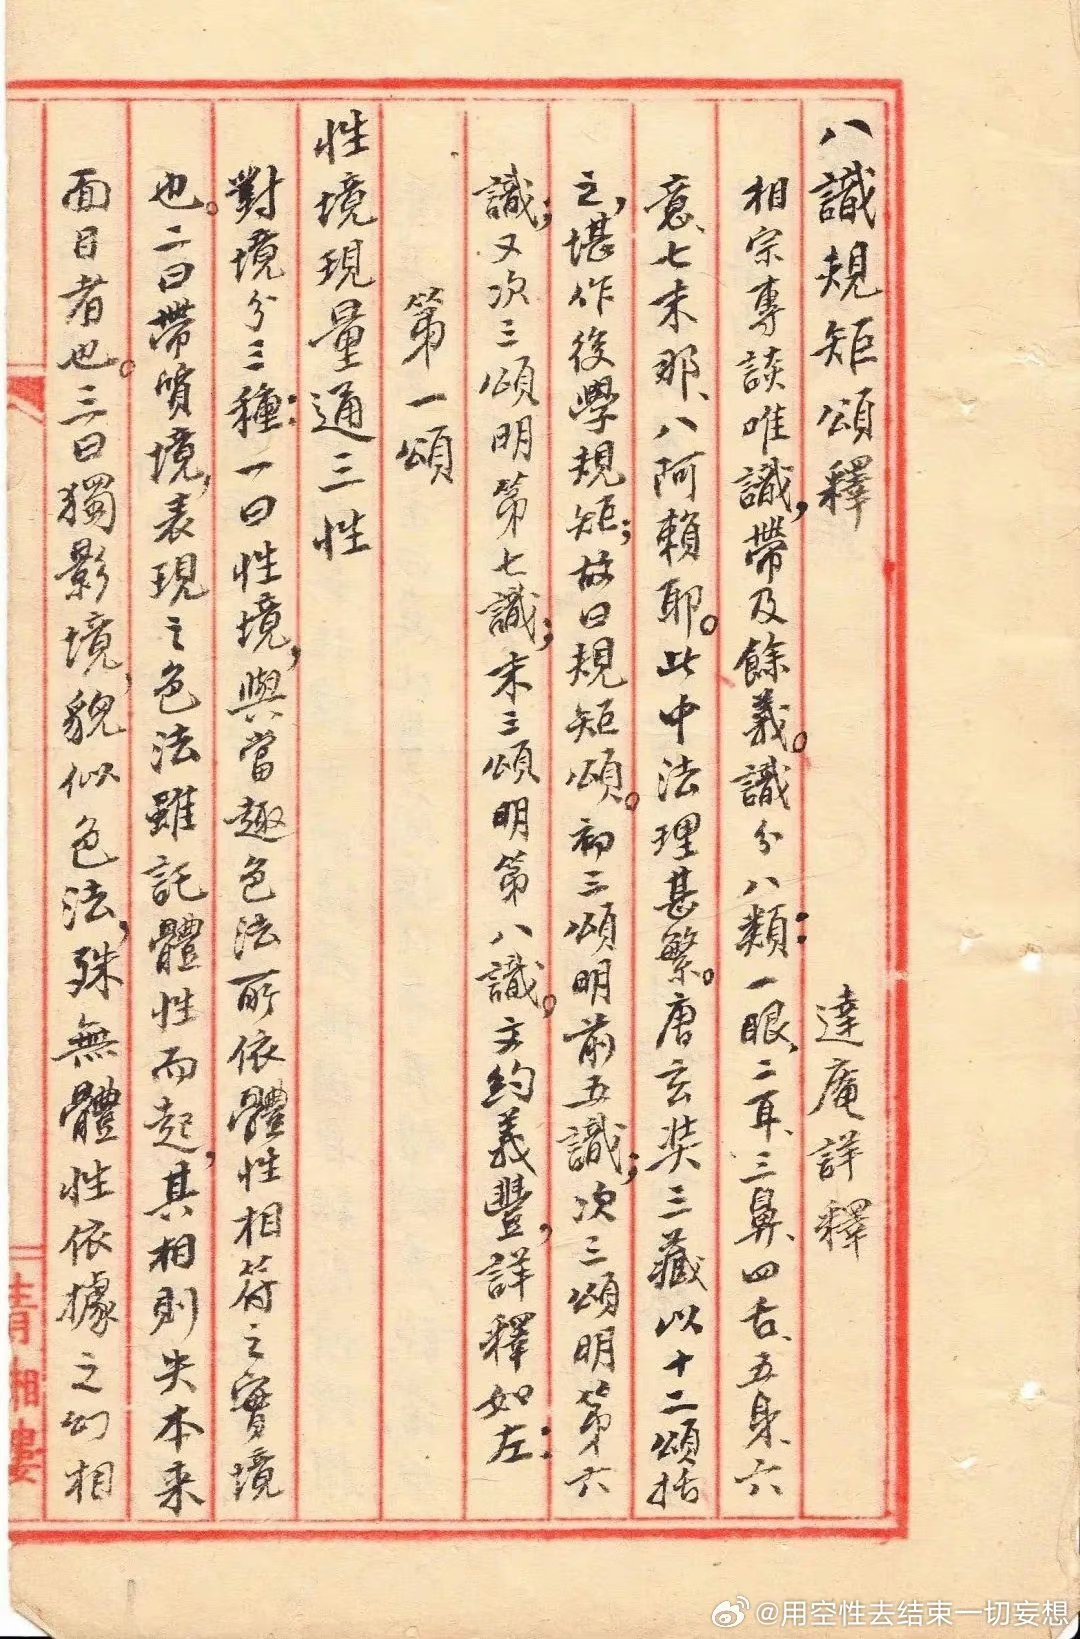 八識規矩頌釋　達庵詳釋
相宗專談唯識，帶及餘義。識分八類：一眼、二耳、三鼻、四舌、五身、六
意、七末那、八阿賴耶。此中法理甚繁。唐玄奘三藏以十二頌括
之，堪作後學規矩；故曰規矩頌。初三頌明前五識；次三頌明第六
識；又次三頌明第七識；末三頌明第八識。文約義豐，詳釋如左：
第一頌
性境現量通三性
對境分三種：一曰性境，與當趣色法所依體性相符之實境
也。二曰帶質境，表現之色法雖託體性而起，其相則失本来
面目者也。三曰獨影境，貌似色法，殊無體性依據之幻相
@用空性去结束一切妄想